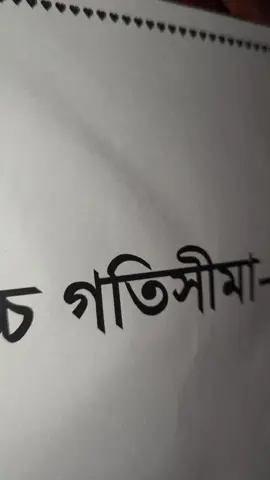 চ গতিসীমা-